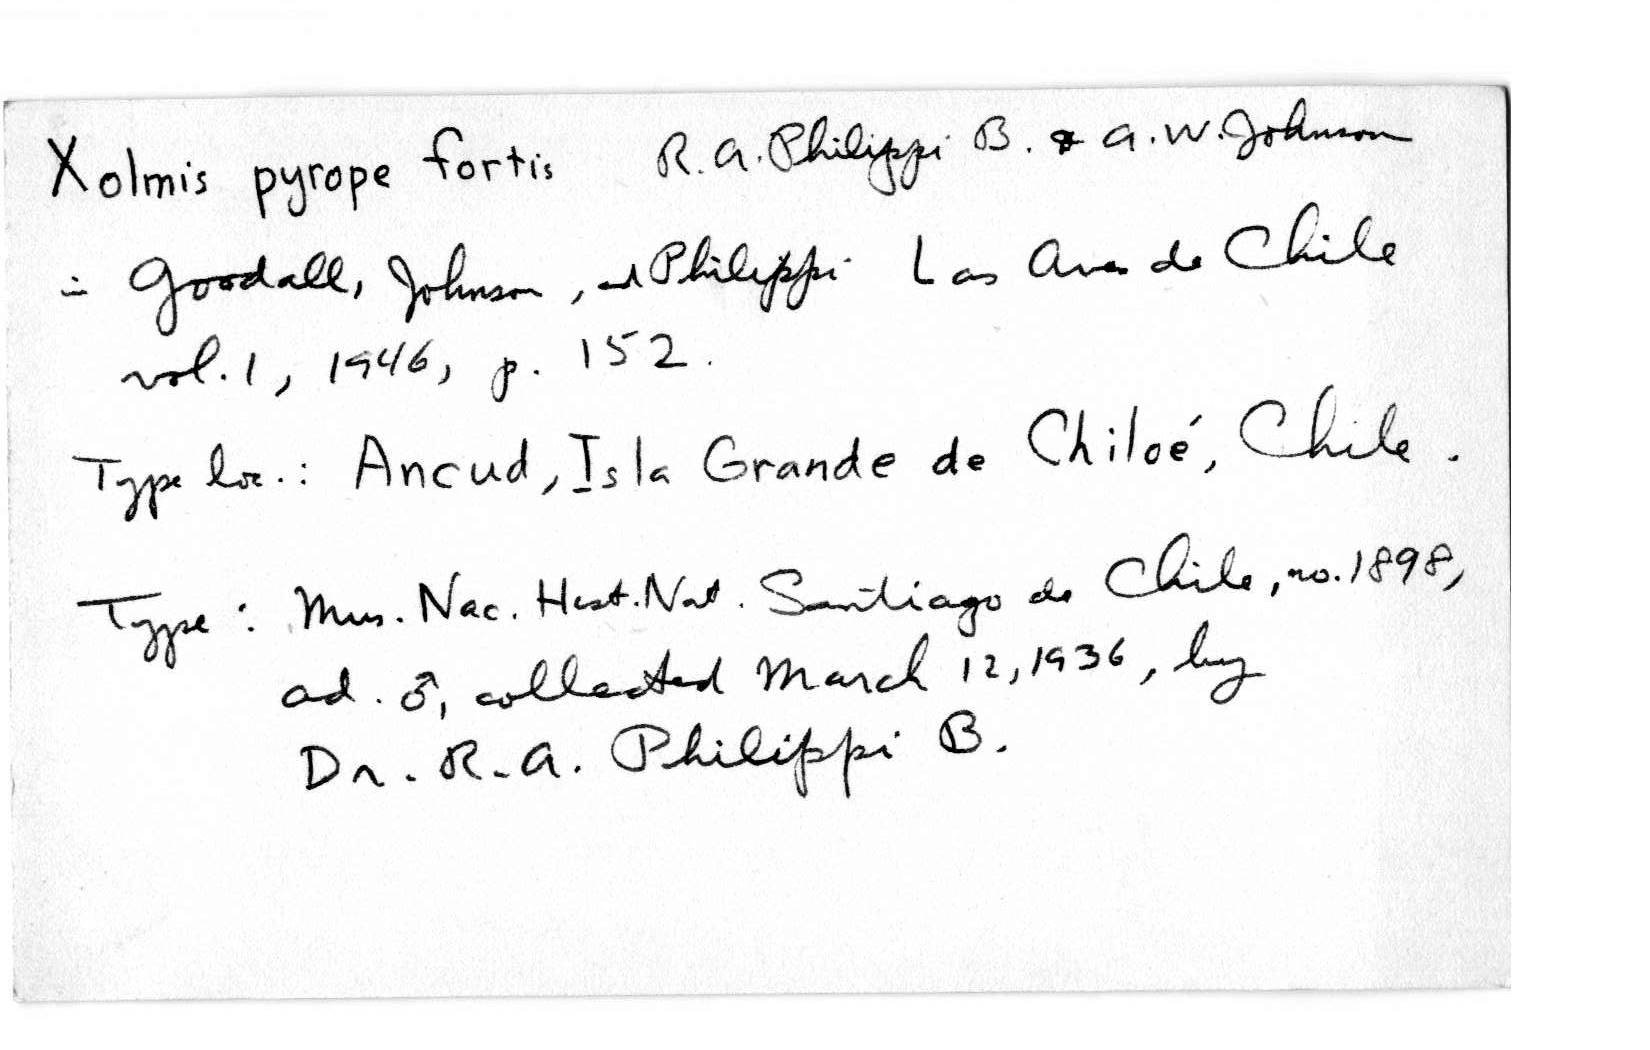 Xolmis pyrope fortis R. A. Philippi B. & A. W. Johnson
in Goodall, Johnson, and Philippi Las Aves de Chile
vol. 1, 1946, p. 152.
Type loc.: Ancud, Isla Grande de Chiloé, Chile.
Type: Mus. Nac. Hist. Nat. Santiago de Chile, no. 1898,
ad. ♂, collected March 12, 1936, by
Dr. R. A. Philippi B.